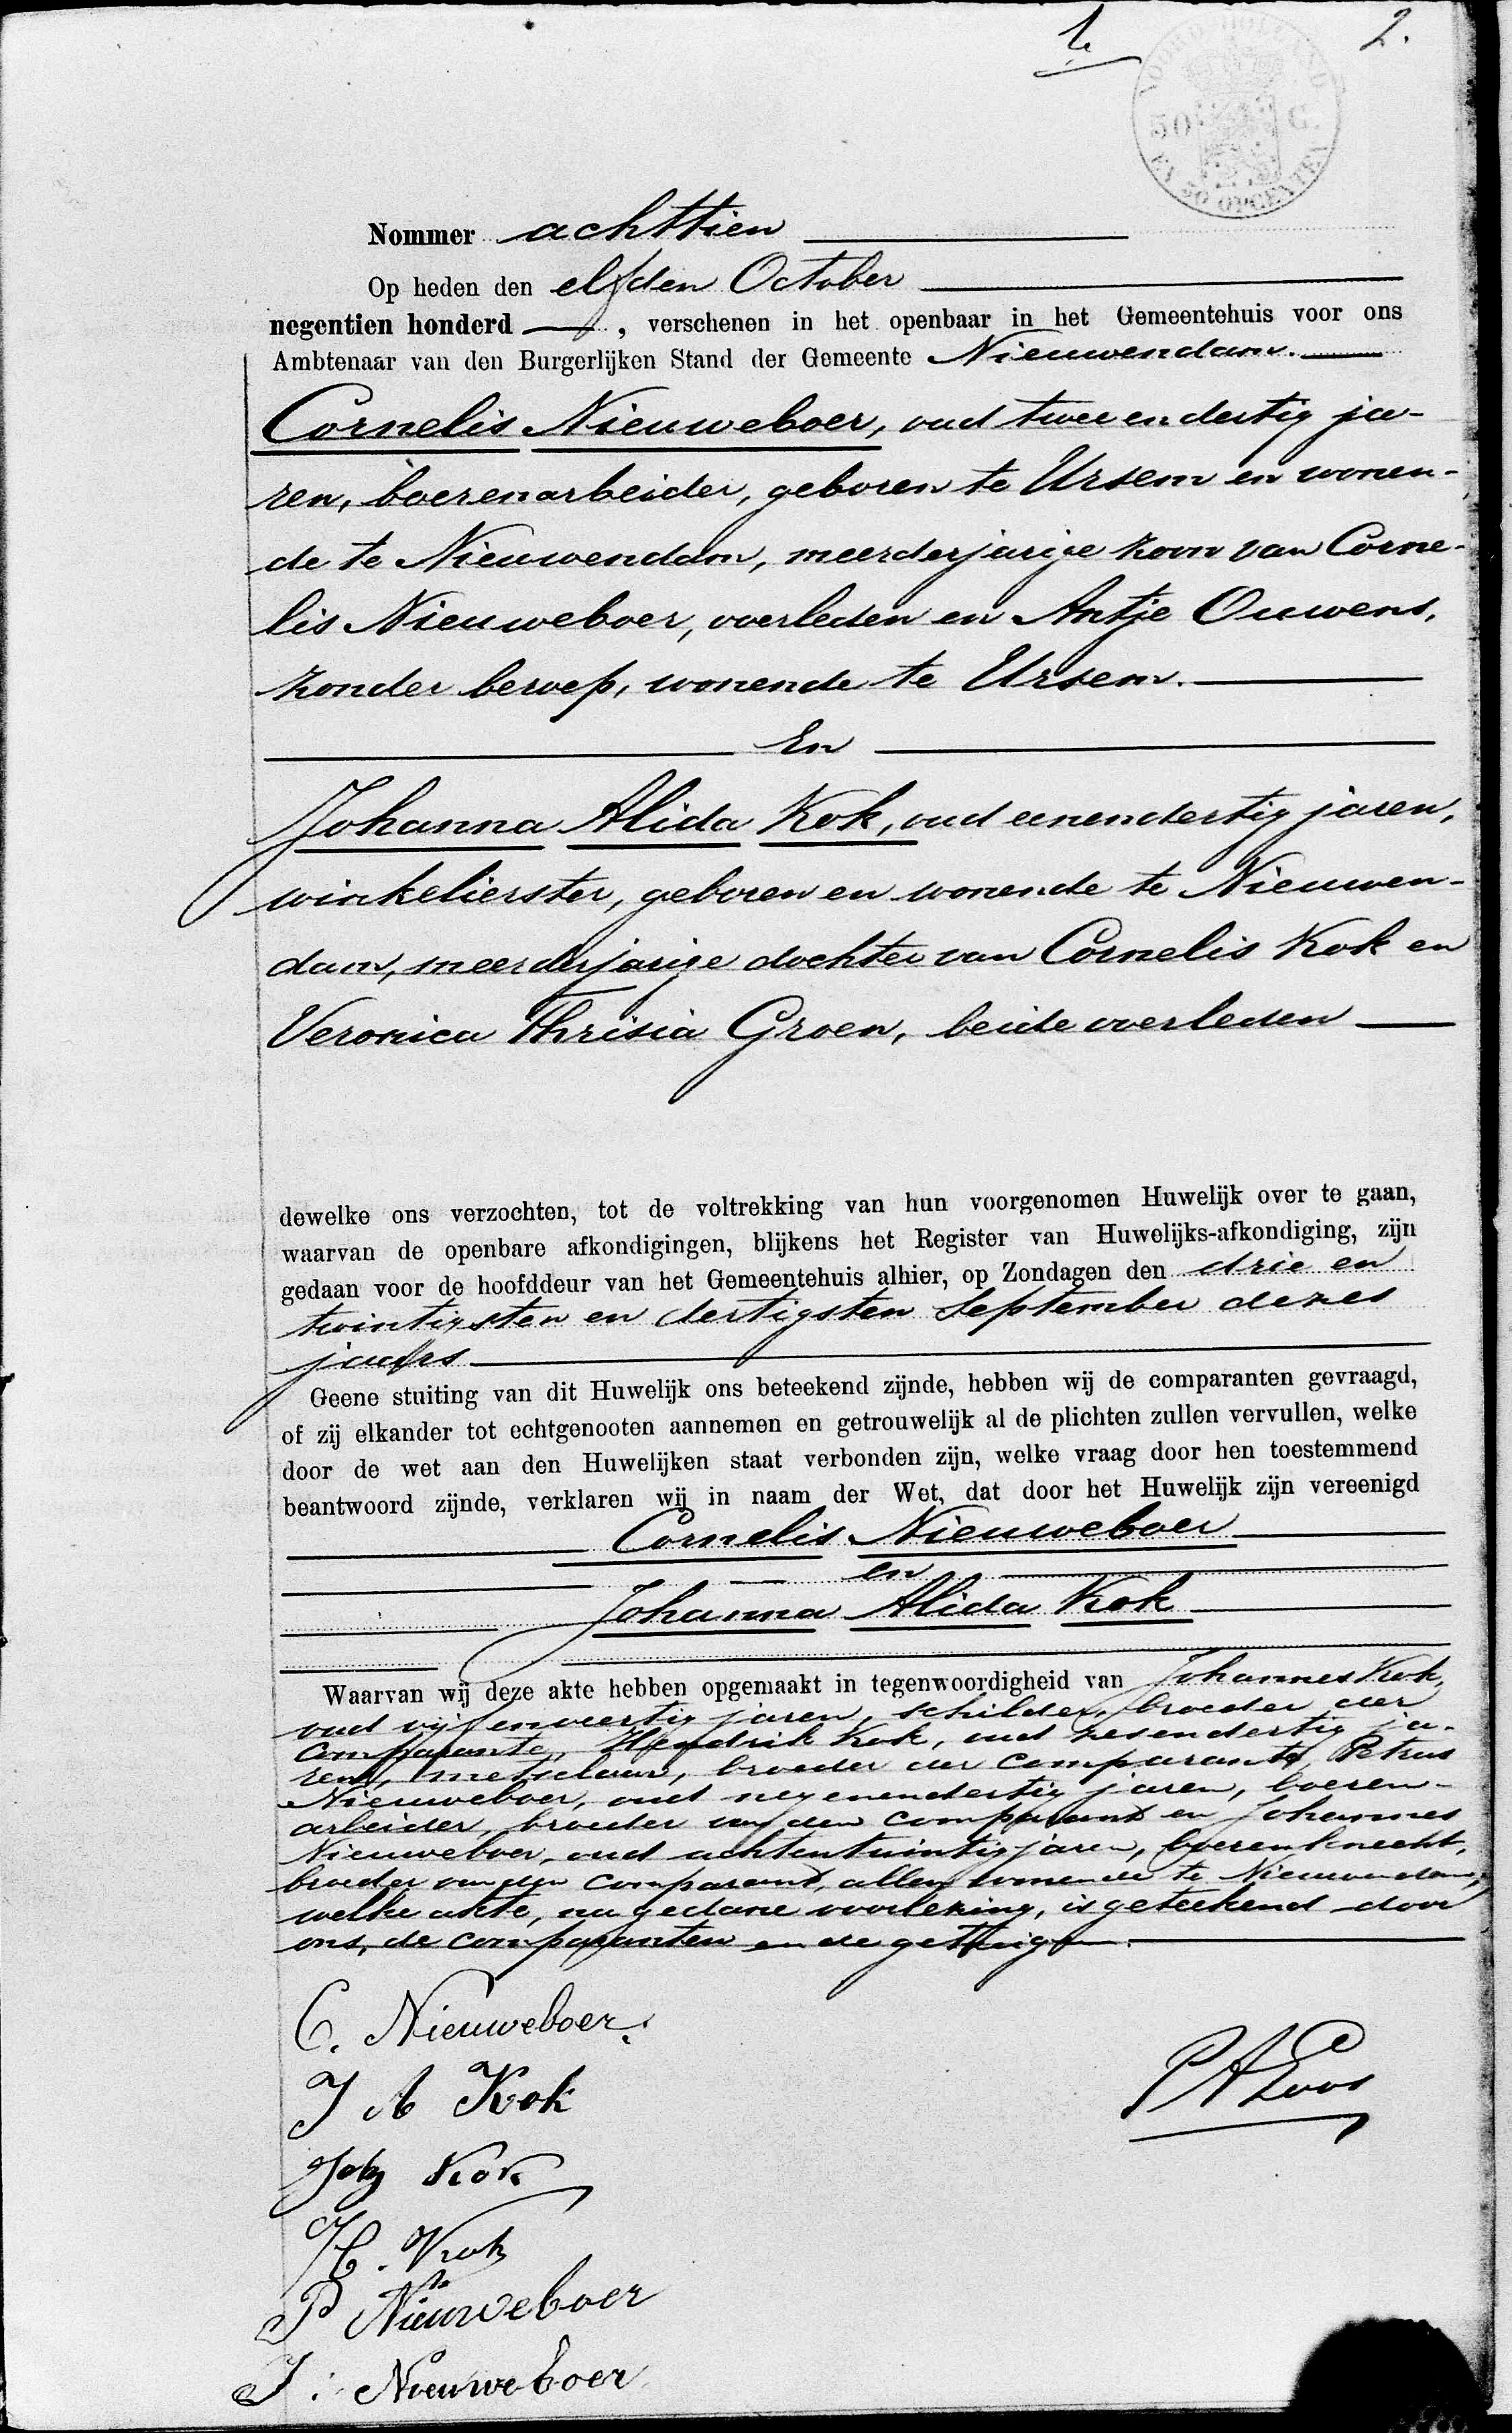 1e
2.
NOORD HOLLAND
50 C.
EN 50 OPCENTEN
Nommer achttien
Op heden den elfden October
negentien honderd —, verschenen in het openbaar in het Gemeentehuis voor ons
Ambtenaar van den Burgerlijken Stand der Gemeente Nieuwendam.
Cornelis Nieuweboer, oud twee en dertig ja-
ren, boerenarbeider, geboren te Ursem en wonen-
de te Nieuwendam, meerderjarige zoon van Corne-
lis Nieuweboer, overleden en Antje Ouwens,
zonder beroep, wonende te Ursem.
En
Johanna Alida Kok, oud eenendertig jaren,
winkelierster, geboren en wonende te Nieuwen-
dam, meerderjarige dochter van Cornelis Kok en
Veronica Thrisia Groen, beide overleden
dewelke ons verzochten, tot de voltrekking van hun voorgenomen Huwelijk over te gaan,
waarvan de openbare afkondigingen, blijkens het Register van Huwelijks-afkondiging, zijn
gedaan voor de hoofddeur van het Gemeentehuis alhier, op Zondagen den drie en
twintigsten en dertigsten September dezes
jaars
Geene stuiting van dit Huwelijk ons beteekend zijnde, hebben wij de comparanten gevraagd,
of zij elkander tot echtgenooten aannemen en getrouwelijk al de plichten zullen vervullen, welke
door de wet aan den Huwelijken staat verbonden zijn, welke vraag door hen toestemmend
beantwoord zijnde, verklaren wij in naam der Wet, dat door het Huwelijk zijn vereenigd
Cornelis Nieuweboer
en
Johanna Alida Kok
Waarvan wij deze akte hebben opgemaakt in tegenwoordigheid van Johannes Kok,
oud vijfenveertig jaren, schilder, broeder der
comparante, Hendrik Kok, oud zesendertig ja-
ren, metselaar, broeder der comparante, Petrus
Nieuweboer, oud negenendertig jaren, boeren-
arbeider, broeder van den comparant en Johannes
Nieuweboer, oud achtentwintig jaren, boerenknecht,
broeder van den comparant, allen wonende te Nieuwendam,
welke akte, na gedane voorlezing, is geteekend door
ons, de comparanten en de getuigen.
C. Nieuweboer.
J A Kok
P A Loos
Johs Kok
H. Kok
P Nieuweboer
J. Nieuweboer